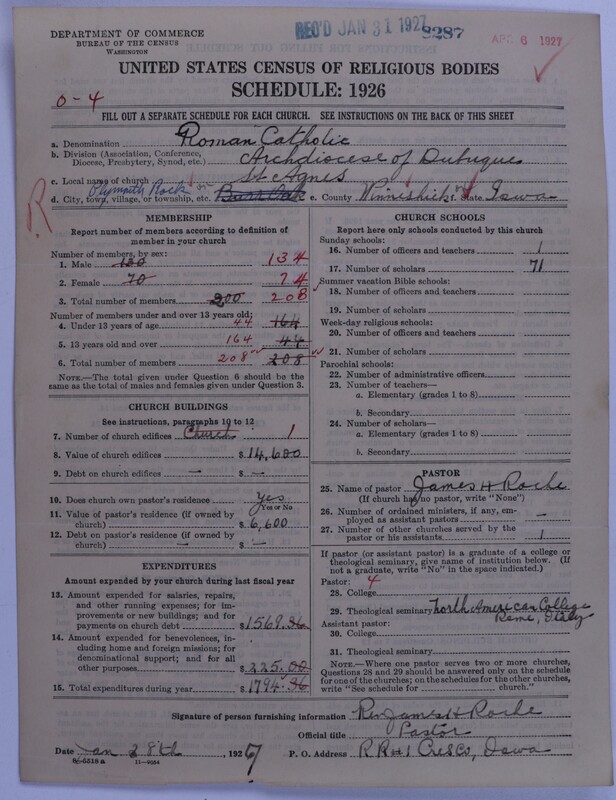 REC'D JAN 31 1927
8287
APR 6 1927
DEPARTMENT OF COMMERCE
BUREAU OF THE CENSUS
WASHINGTON
UNITED STATES CENSUS OF RELIGIOUS BODIES
SCHEDULE: 1926
0-4
FILL OUT A SEPARATE SCHEDULE FOR EACH CHURCH. SEE INSTRUCTIONS ON THE BACK OF THIS SHEET
a. Denomination Roman Catholic
b. Division (Association, Conference, Diocese, Presbytery, Synod, etc.) Archdiocese of Dubuque
c. Local name of church St Agnes
R
d. City, town, village, or township, etc. Plymouth Rock Burr Oak e. County Winneshiek f. State Iowa
MEMBERSHIP
Report number of members according to definition of
member in your church
Number of members, by sex:
1. Male 130 134
2. Female 70 74
3. Total number of members 200 208
Number of members under and over 13 years old:
4. Under 13 years of age 44 164
5. 13 years old and over 164 44
6. Total number of members 208 208
NOTE.—The total given under Question 6 should be
the same as the total of males and females given under Question 3.
CHURCH BUILDINGS
See instructions, paragraphs 10 to 12
7. Number of church edifices Church 1
8. Value of church edifices $ 14,600
9. Debt on church edifices — $ —
10. Does church own pastor's residence yes
Yes or No
11. Value of pastor's residence (if owned by
church) $ 6,600
12. Debt on pastor's residence (if owned by
church) — $ —
EXPENDITURES
Amount expended by your church during last fiscal year
13. Amount expended for salaries, repairs,
and other running expenses; for im-
provements or new buildings; and for
payments on church debt $ 1569.36
14. Amount expended for benevolences, in-
cluding home and foreign missions; for
denominational support; and for all
other purposes $ 225.00
15. Total expenditures during year $ 1794.36
CHURCH SCHOOLS
Report here only schools conducted by this church
Sunday schools:
16. Number of officers and teachers 1
17. Number of scholars 71
Summer vacation Bible schools:
18. Number of officers and teachers
19. Number of scholars
Week-day religious schools:
20. Number of officers and teachers
21. Number of scholars
Parochial schools:
22. Number of administrative officers
23. Number of teachers—
a. Elementary (grades 1 to 8)
b. Secondary
24. Number of scholars—
a. Elementary (grades 1 to 8)
b. Secondary
PASTOR
25. Name of pastor James H Roche
(If church has no pastor, write "None")
26. Number of ordained ministers, if any, em-
ployed as assistant pastors —
27. Number of other churches served by the
pastor or his assistants 1
If pastor (or assistant pastor) is a graduate of a college or
theological seminary, give name of institution below. (If
not a graduate, write "No" in the space indicated.)
Pastor: 4
28. College
29. Theological seminary North American College
Rome, Italy
Assistant pastor:
30. College
31. Theological seminary
NOTE.—Where one pastor serves two or more churches,
Questions 28 and 29 should be answered only on the schedule
for one of the churches; on the schedules for the other churches,
write "See schedule for church."
Signature of person furnishing information Rev James H Roche
Official title Pastor
Date Jan 28th, 1927 P. O. Address R R #1 Cresco, Iowa
11—9084